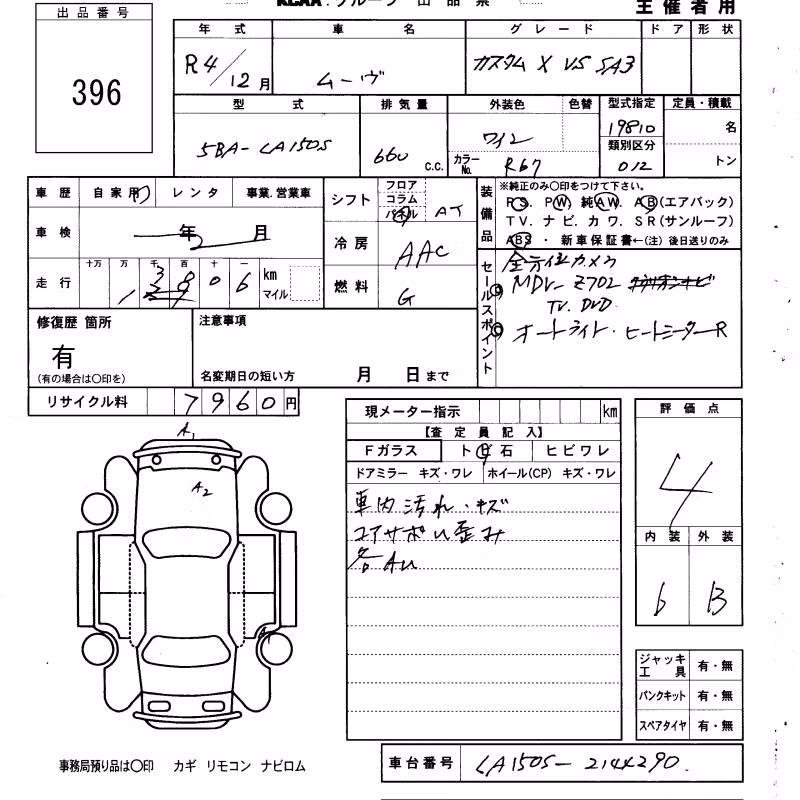 KCAA グループ 出品票
主催者用
出品番号
396
年式 車名 グレード ドア 形状
R4/12月 ムーヴ カスタム X VS SA3
型式 排気量 外装色 色替 型式指定 定員・積載
5BA-LA150S 660 c.c. ワイン 19810 名
類別区分
カラーNo. R67 012 トン
車歴 自家用 レンタ 事業.営業車
シフト フロア コラム パネル AT
装備品
※純正のみ〇印をつけて下さい。
P.S. P.W 純A.W. A.B(エアバック)
T.V. ナビ. カワ. S R(サンルーフ)
ABS ・ 新車保証書←(注) 後日送りのみ
車検 年 月
冷房 AAC
走行 十万 万 千 百 十 一 km マイル
燃料 G
セールスポイント
全方位カメラ
MDV-Z702
TV. DVD
オートライト・ヒートミーターR
修復歴 箇所
有
(有の場合は〇印を)
注意事項
名変期日の短い方 月 日まで
リサイクル料 7960円
現メーター指示 km
【査定員記入】
Fガラス トビ石 ヒビワレ
ドアミラー キズ・ワレ ホイール(CP) キズ・ワレ
車内汚れ・キズ
コアサポUし歪み
各AU
評価点
4
内装 外装
6 B
A1
A2
A1
ジャッキ 工具 有・無
パンクキット 有・無
スペアタイヤ 有・無
事務局預り品は〇印 カギ リモコン ナビロム
車台番号 LA150S-2144290